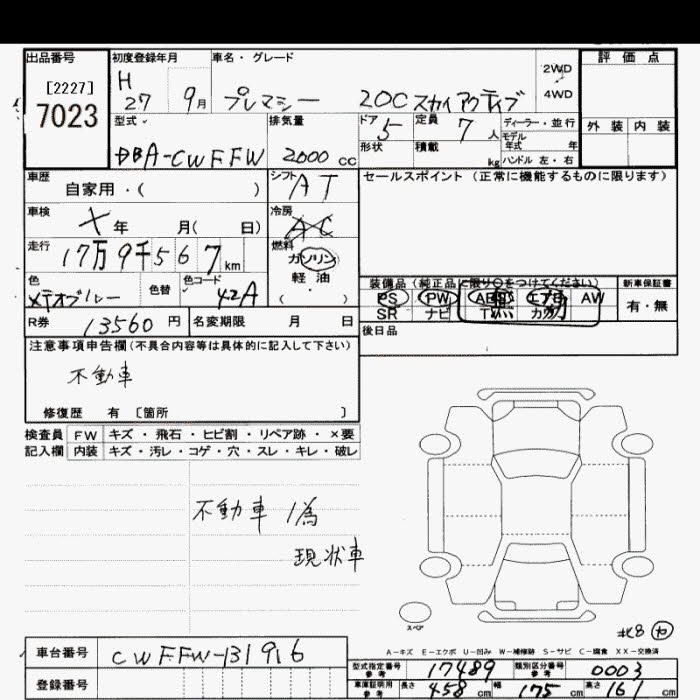 出品番号 初度登録年月 車名・グレード 2WD 評価点
[2227] H
7023 27 9月 プレマシー 20C スカイアクティブ 4WD
型式 排気量 ドア 定員 ディーラー・並行 外装 内装
DBA-CWFFW 2000 cc 5 7人 モデル年式 年
形状 積載 kg ハンドル 左・右
車歴 シフト セールスポイント (正常に機能するものに限ります)
自家用・( ) AT
車検 冷房
× 年 月( 日) AC
走行 燃料
17万9千567km ガソリン
軽油
色 色替 色コード ( ) 装備品 (純正品に限り○をつけてください) 新車保証書
メテオブルー 42A PS PW エアB AW 有・無
SR ナビ TV カワ
R券 13560円 名変期限 月 日 後日品
注意事項申告欄 (不具合内容等は具体的に記入して下さい)
不動車
修復歴 有 [箇所 ]
検査員 FW キズ・飛石・ヒビ割・リペア跡・×要
記入欄 内装 キズ・汚レ・コゲ・穴・スレ・キレ・破レ
不動車 為
現状車
スペア
A-キズ E-エクボ U-凹み W-補修跡 S-サビ C-腐食 XX-交換済
車台番号 CWFFW-131916
型式指定番号 参考 17489 類別区分番号 参考 0003
登録番号
車庫証明用 参考 長さ 458 cm 幅 175 cm 高さ 161 cm